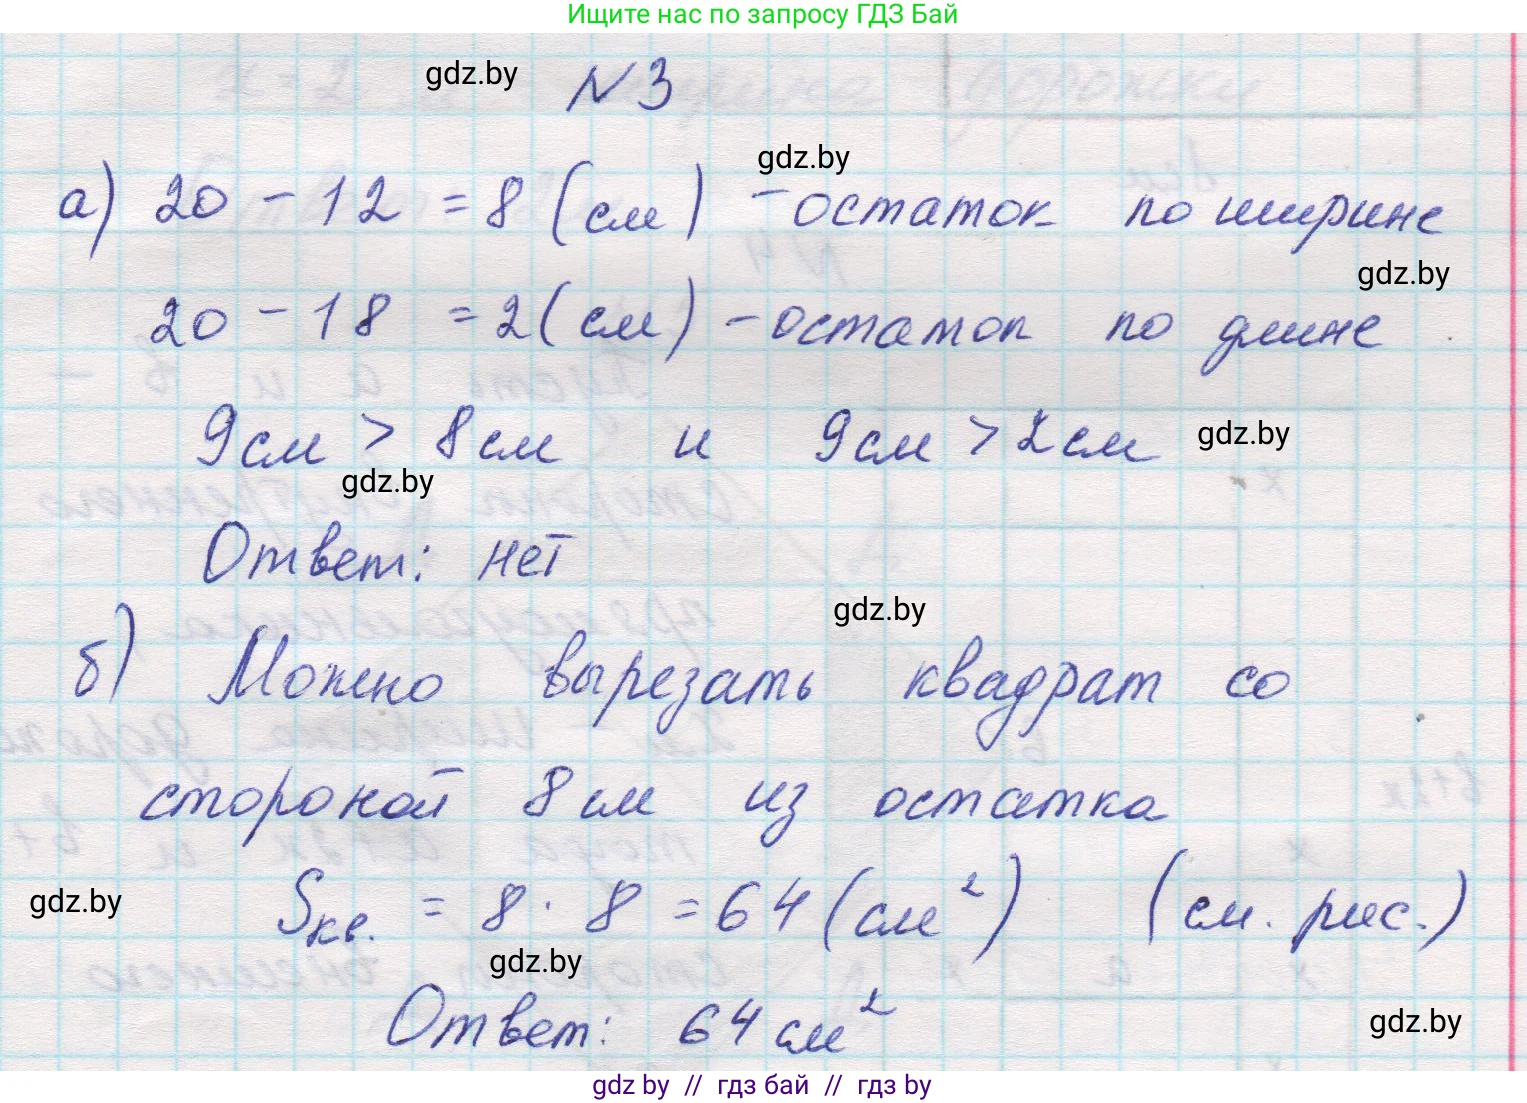 Ищите нас по запросу ГДЗ Бай
gdz.by
N 3
gdz.by
а) 20 - 12 = 8 (см) - остаток по ширине
gdz.by
20 - 18 = 2 (см) - остаток по длине
9 см > 8 см и 9 см > 2 см
gdz.by
gdz.by
Ответ: нет
gdz.by
б) Можно вырезать квадрат со
стороной 8 см из остатка
gdz.by
Sкв. = 8 · 8 = 64 (см²) (см. рис.)
gdz.by
Ответ: 64 см²
gdz.by
gdz by // гдз бай // гдз by